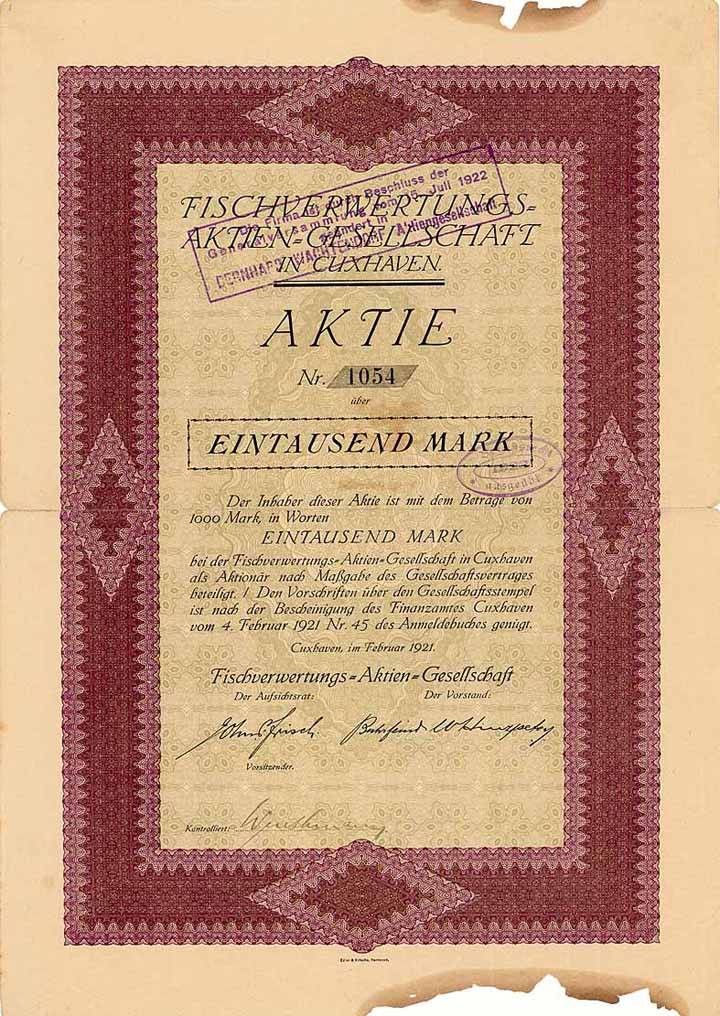 FISCHVERWERTUNGS-
AKTIEN-GESELLSCHAFT
IN CUXHAVEN.
Die Firma ist durch Beschluss der
Generalversammlung vom 15. Juli 1922
geändert in
BERNHARD WACHTENDORF Aktiengesellschaft
AKTIE
Nr. 1054
über
EINTAUSEND MARK
ausgegeb
Der Inhaber dieser Aktie ist mit dem Betrage von
1000 Mark, in Worten
EINTAUSEND MARK
bei der Fischverwertungs-Aktien-Gesellschaft in Cuxhaven
als Aktionär nach Maßgabe des Gesellschaftsvertrages
beteiligt. / Den Vorschriften über den Gesellschaftsstempel
ist nach der Bescheinigung des Finanzamtes Cuxhaven
vom 4. Februar 1921 Nr. 45 des Anmeldebuches genügt.
Cuxhaven, im Februar 1921.
Fischverwertungs-Aktien-Gesellschaft
Der Aufsichtsrat: Der Vorstand:
Vorsitzender.
Kontrolliert: